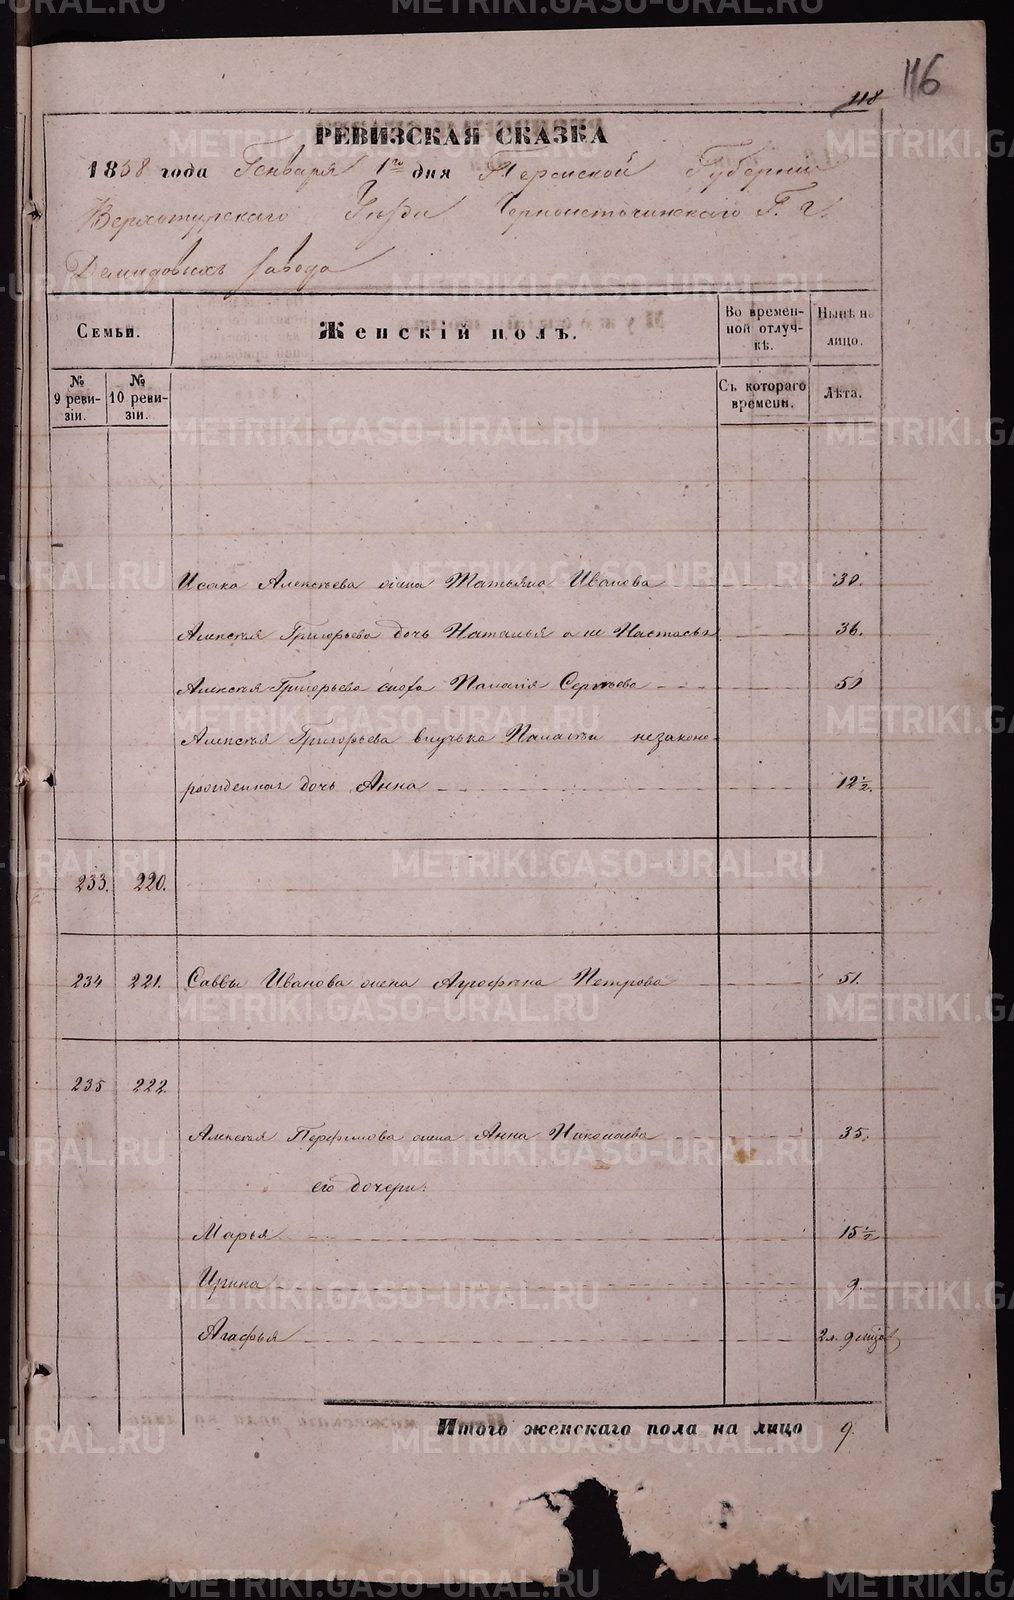 116
118
РЕВИЗСКАЯ СКАЗКА
1858 года Генваря 1го дня Пермской Губернии
Верхотурскаго Уезда Черноисточинскаго Г. г.
Демидовыхъ завода
Семьи.
Женскій полъ.
Во временной отлучкѣ.
Нынѣ на лицо.
№ 9 ревизіи.
№ 10 ревизіи.
Съ котораго времени.
Лѣта.
Исака Алексѣева жена Татьяна Иванова 30.
Алексѣя Григорьева дочь Наталья а не Настасья 36.
Алексѣя Григорьева сноха Палагія Сергѣева 50
Алексѣя Григорьева внучька Палагѣи незаконо-
рожденная дочь Анна 12½.
233. 220.
234 221. Саввы Иванова жена Аграфѣна Петрова 51.
235 222.
Алексѣя Перфилова жена Анна Николаева 35.
его дочери:
Марья 15½
Ирина 9.
Агафья 2л. 9 мѣся
Итого женскаго пола на лицо 9.
METRIKI.GASO-URAL.RU